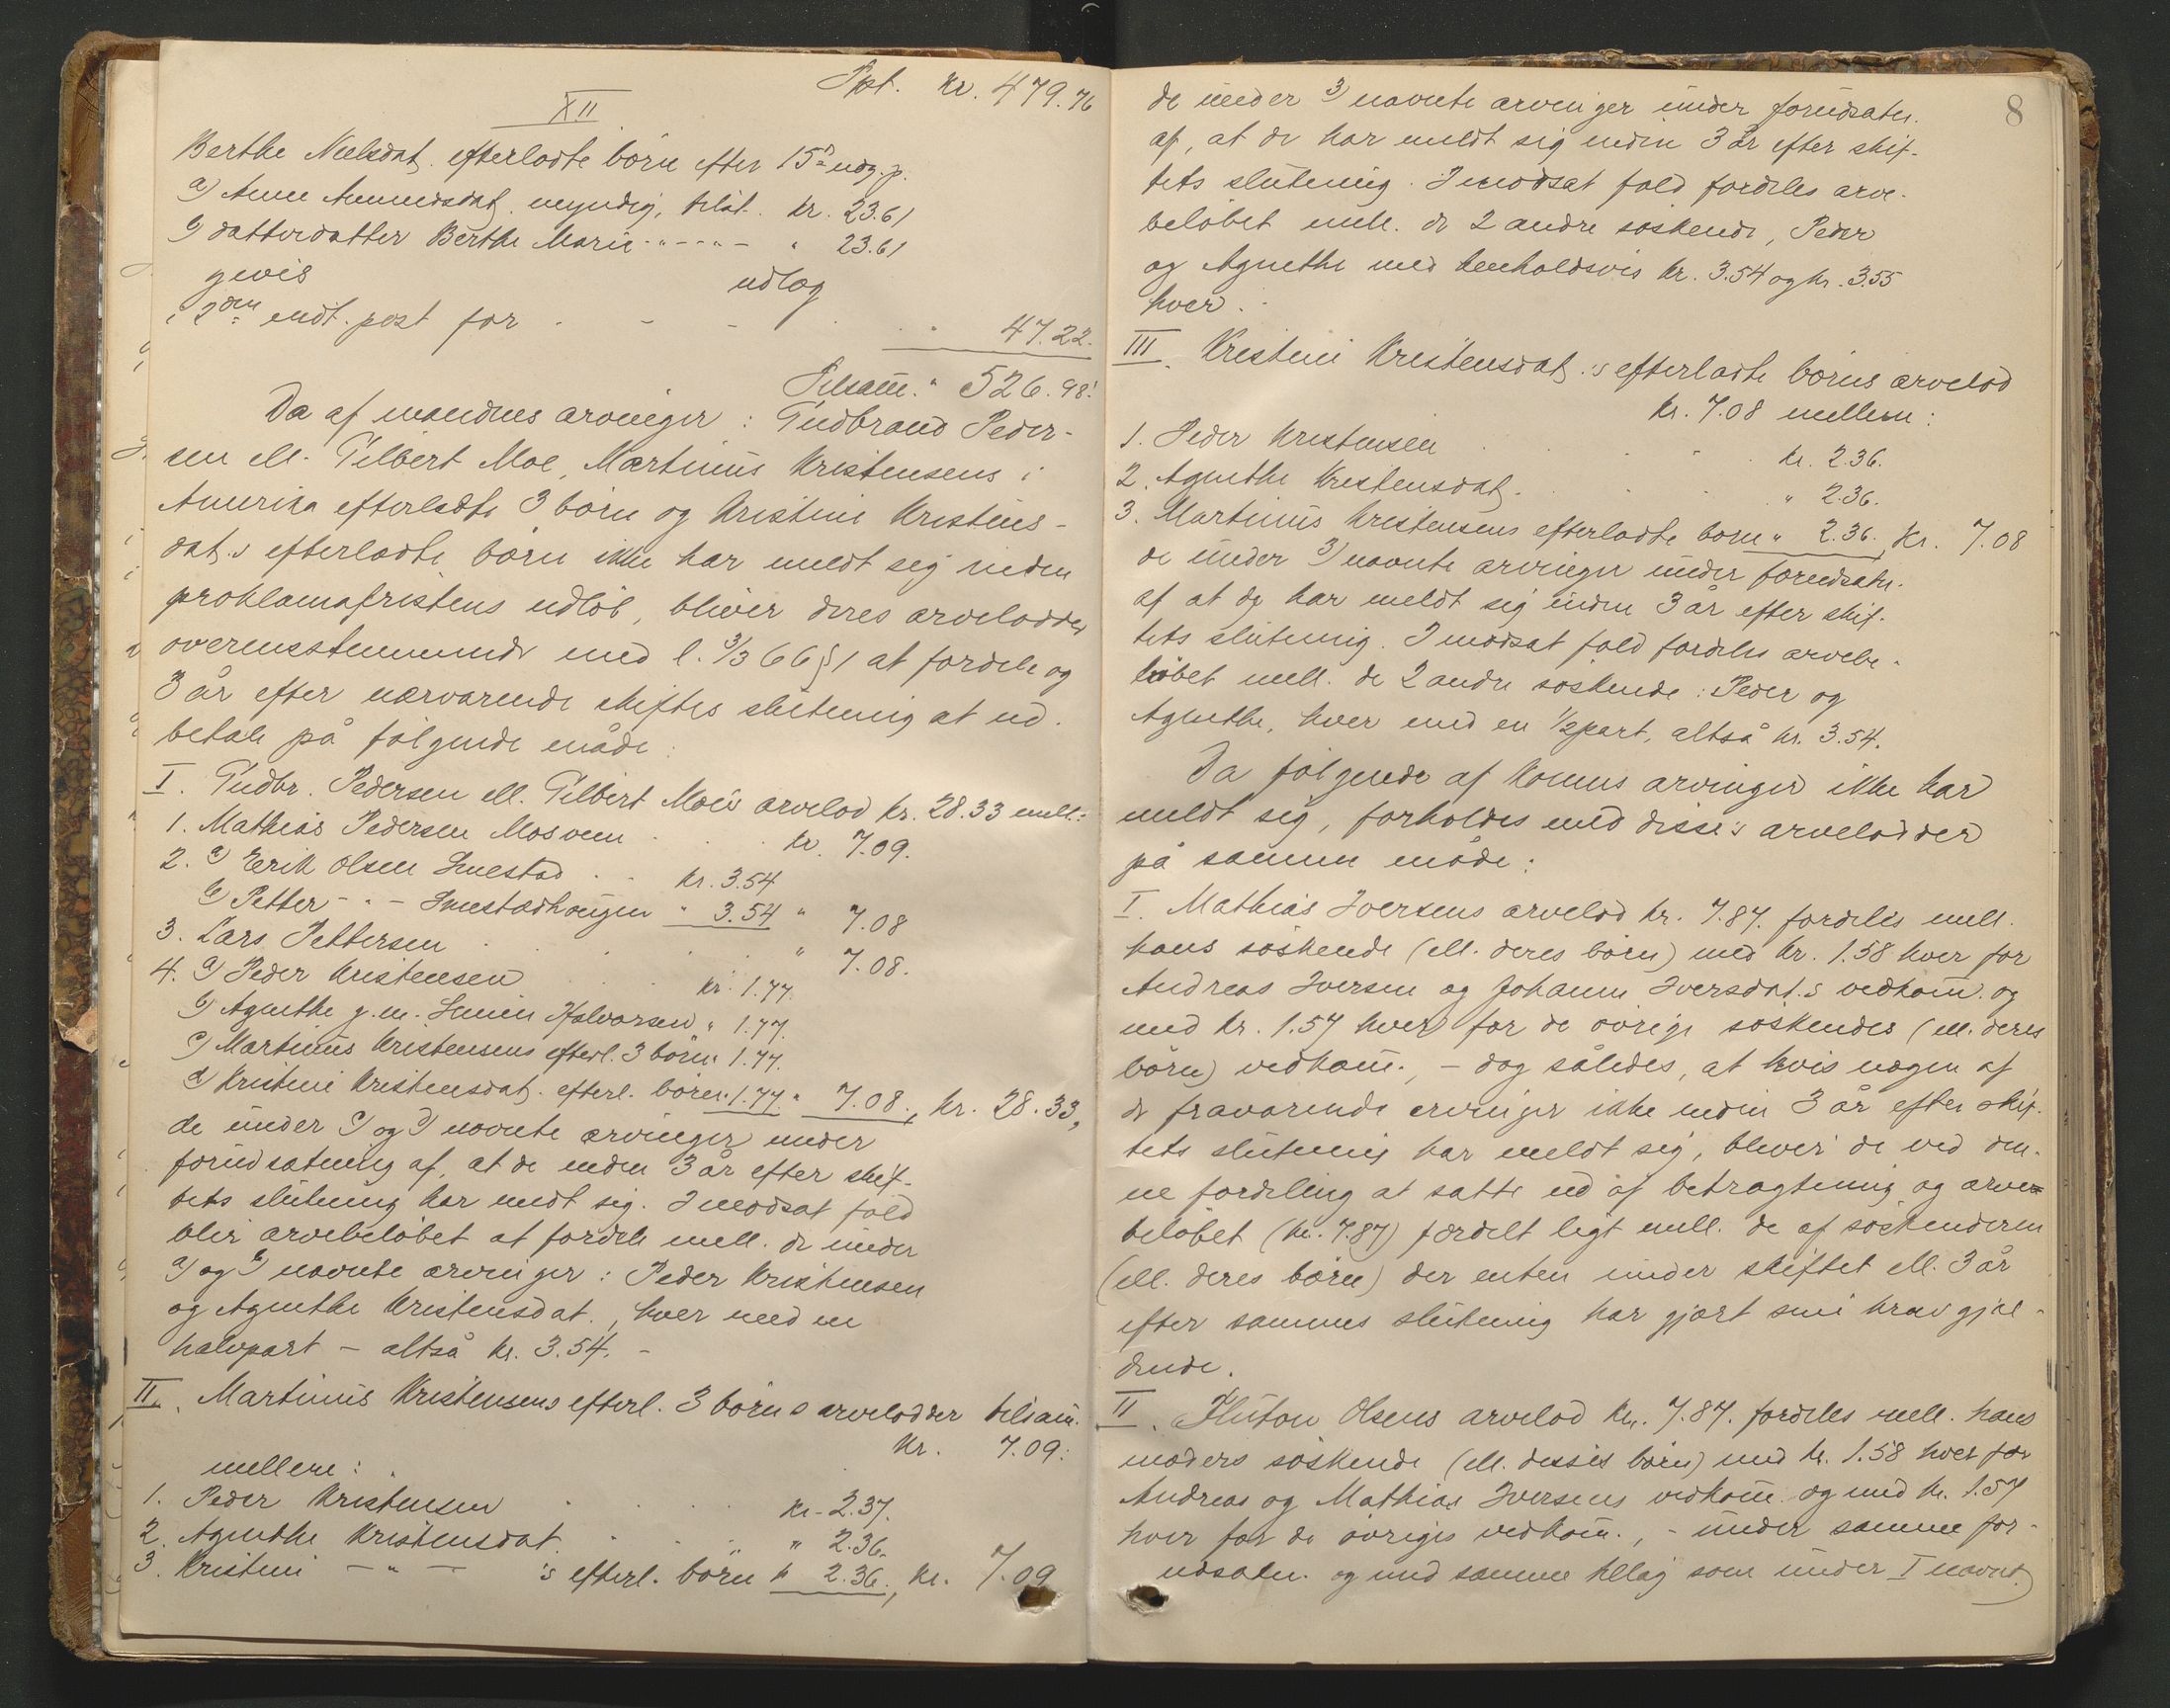 Tpt. kr. 479.76
XII
Berthe Nielsdat. efterladte börn efter 15de udg. p.
a) Anne Amundsdat. myndig, tilst. kr. 23.61
b) datterdatter Berthe Marie -"- - " - " 23.61
gevis udlæg
i 2den indt. post for . - - . . " 47.22.
Tilsam. " 526.98.
Da af mandens arvinger: Gudbrand Peder-
sen ell. Gilbert Moe, Martinus Kristensens i
Amerika efterladte 3 börn og Kristine Kristens-
dat.s efterladte börn ikke har meldt sig inden
proklamafristens udlöb, bliver deres arvelodder
overensstemmende med l. 3/3 66 § 1 at fordele og
3 år efter nærværende skiftes slutning at ud-
betale på fölgende måde:
I. Gudbr. Pedersen ell. Gilbert Moe's arvelod kr. 28.33 mell:
1. Mathias Pedersen Mosveen . . . kr. 7.09.
2. a) Erik Olsen Smestad . . kr. 3.54
b) Petter - " - Smestadhaugen " 3.54 " 7.08
3. Lars Pettersen . . . . " 7.08.
4. a) Peder Kristensen . . . kr. 1.77.
b) Agnethe g. m. Simen Halvorsen " 1.77.
c) Martinus Kristensens efterl. 3 börn " 1.77.
d) Kristine Kristensdat. efterl. börn " 1.77. " 7.08., kr. 28.33,
de under c) og d) nævnte arvinger under
forudsætning af, at de inden 3 år efter skif-
tets slutning har meldt sig. I modsat fald
blir arvebelöbet at fordele mell. de under
a) og b) nævnte arvinger: Peder Kristensen
og Agnethe Kristensdat., hver med en
halvpart - altså kr. 3.54. -
II. Martinus Kristensens efterl. 3 börns arvelodder tilsam.
kr. 7.09:
mellem:
1. Peder Kristensen . . . kr. 2.37.
2. Agnethe Kristensdat. . . . " 2.36.
3. Kristine - " - 's efterl. börn " 2.36., kr. 7.09
8
de under 3) nævnte arvinger under forudsætn.
af, at de har meldt sig inden 3 år efter skif-
tets slutning. I modsat fald fordeles arve-
belöbet mell. de 2 andre söskende, Peder
og Agnethe med henholdsvis kr. 3.54 og kr. 3.55
hver.
III. Kristine Kristensdat.'s efterladte börns arvelod
kr. 7.08 mellem:
1. Peder Kristensen . . . . kr. 2.36.
2. Agnethe Kristensdat. . . . " 2.36.
3. Martinus Kristensens efterladte börn " 2.36., kr. 7.08
de under 3) nævnte arvinger under forudsætn.
af at de har meldt sig inden 3 år efter skif-
tets slutning. I modsat fald fordeles arvebe-
löbet mell. de 2 andre söskende: Peder og
Agnethe, hver med en 1/2 part, altså kr. 3.54.
Da fölgende af konens arvinger ikke har
meldt sig, forholdes med disse's arvelodder
på samme måde:
I. Mathias Iversens arvelod kr. 7.87. fordeles mell.
hans söskende (ell. deres börn) med kr. 1.58 hver for
Andreas Iversen og Johanne Iversdat.s vedkom. og
med kr. 1.57 hver for de övrige söskendes (ell. deres
börn) vedkom., - dog således, at hvis nogen af
de fraværende arvinger ikke inden 3 år efter skif-
tets slutning har meldt sig, bliver de ved den-
ne fordeling at sætte ud af betragtning og arve-
belöbet (kr. 7.87) fordelt ligt mell. de af söskenderne
(ell. deres börn) der enten under skiftet ell. 3 år
efter sammes slutning har gjort sine krav gjæl-
dende.
II. Olsens arvelod kr. 7.87. fordeles mell. hans
moders söskende (ell. disses börn) med kr. 1.58 hver for
Andreas og Mathias Iversens vedkom. og med kr. 1.57
hver for de övriges vedkom., - under samme for-
udsætn. og med samme tillæg som under I nævnt.